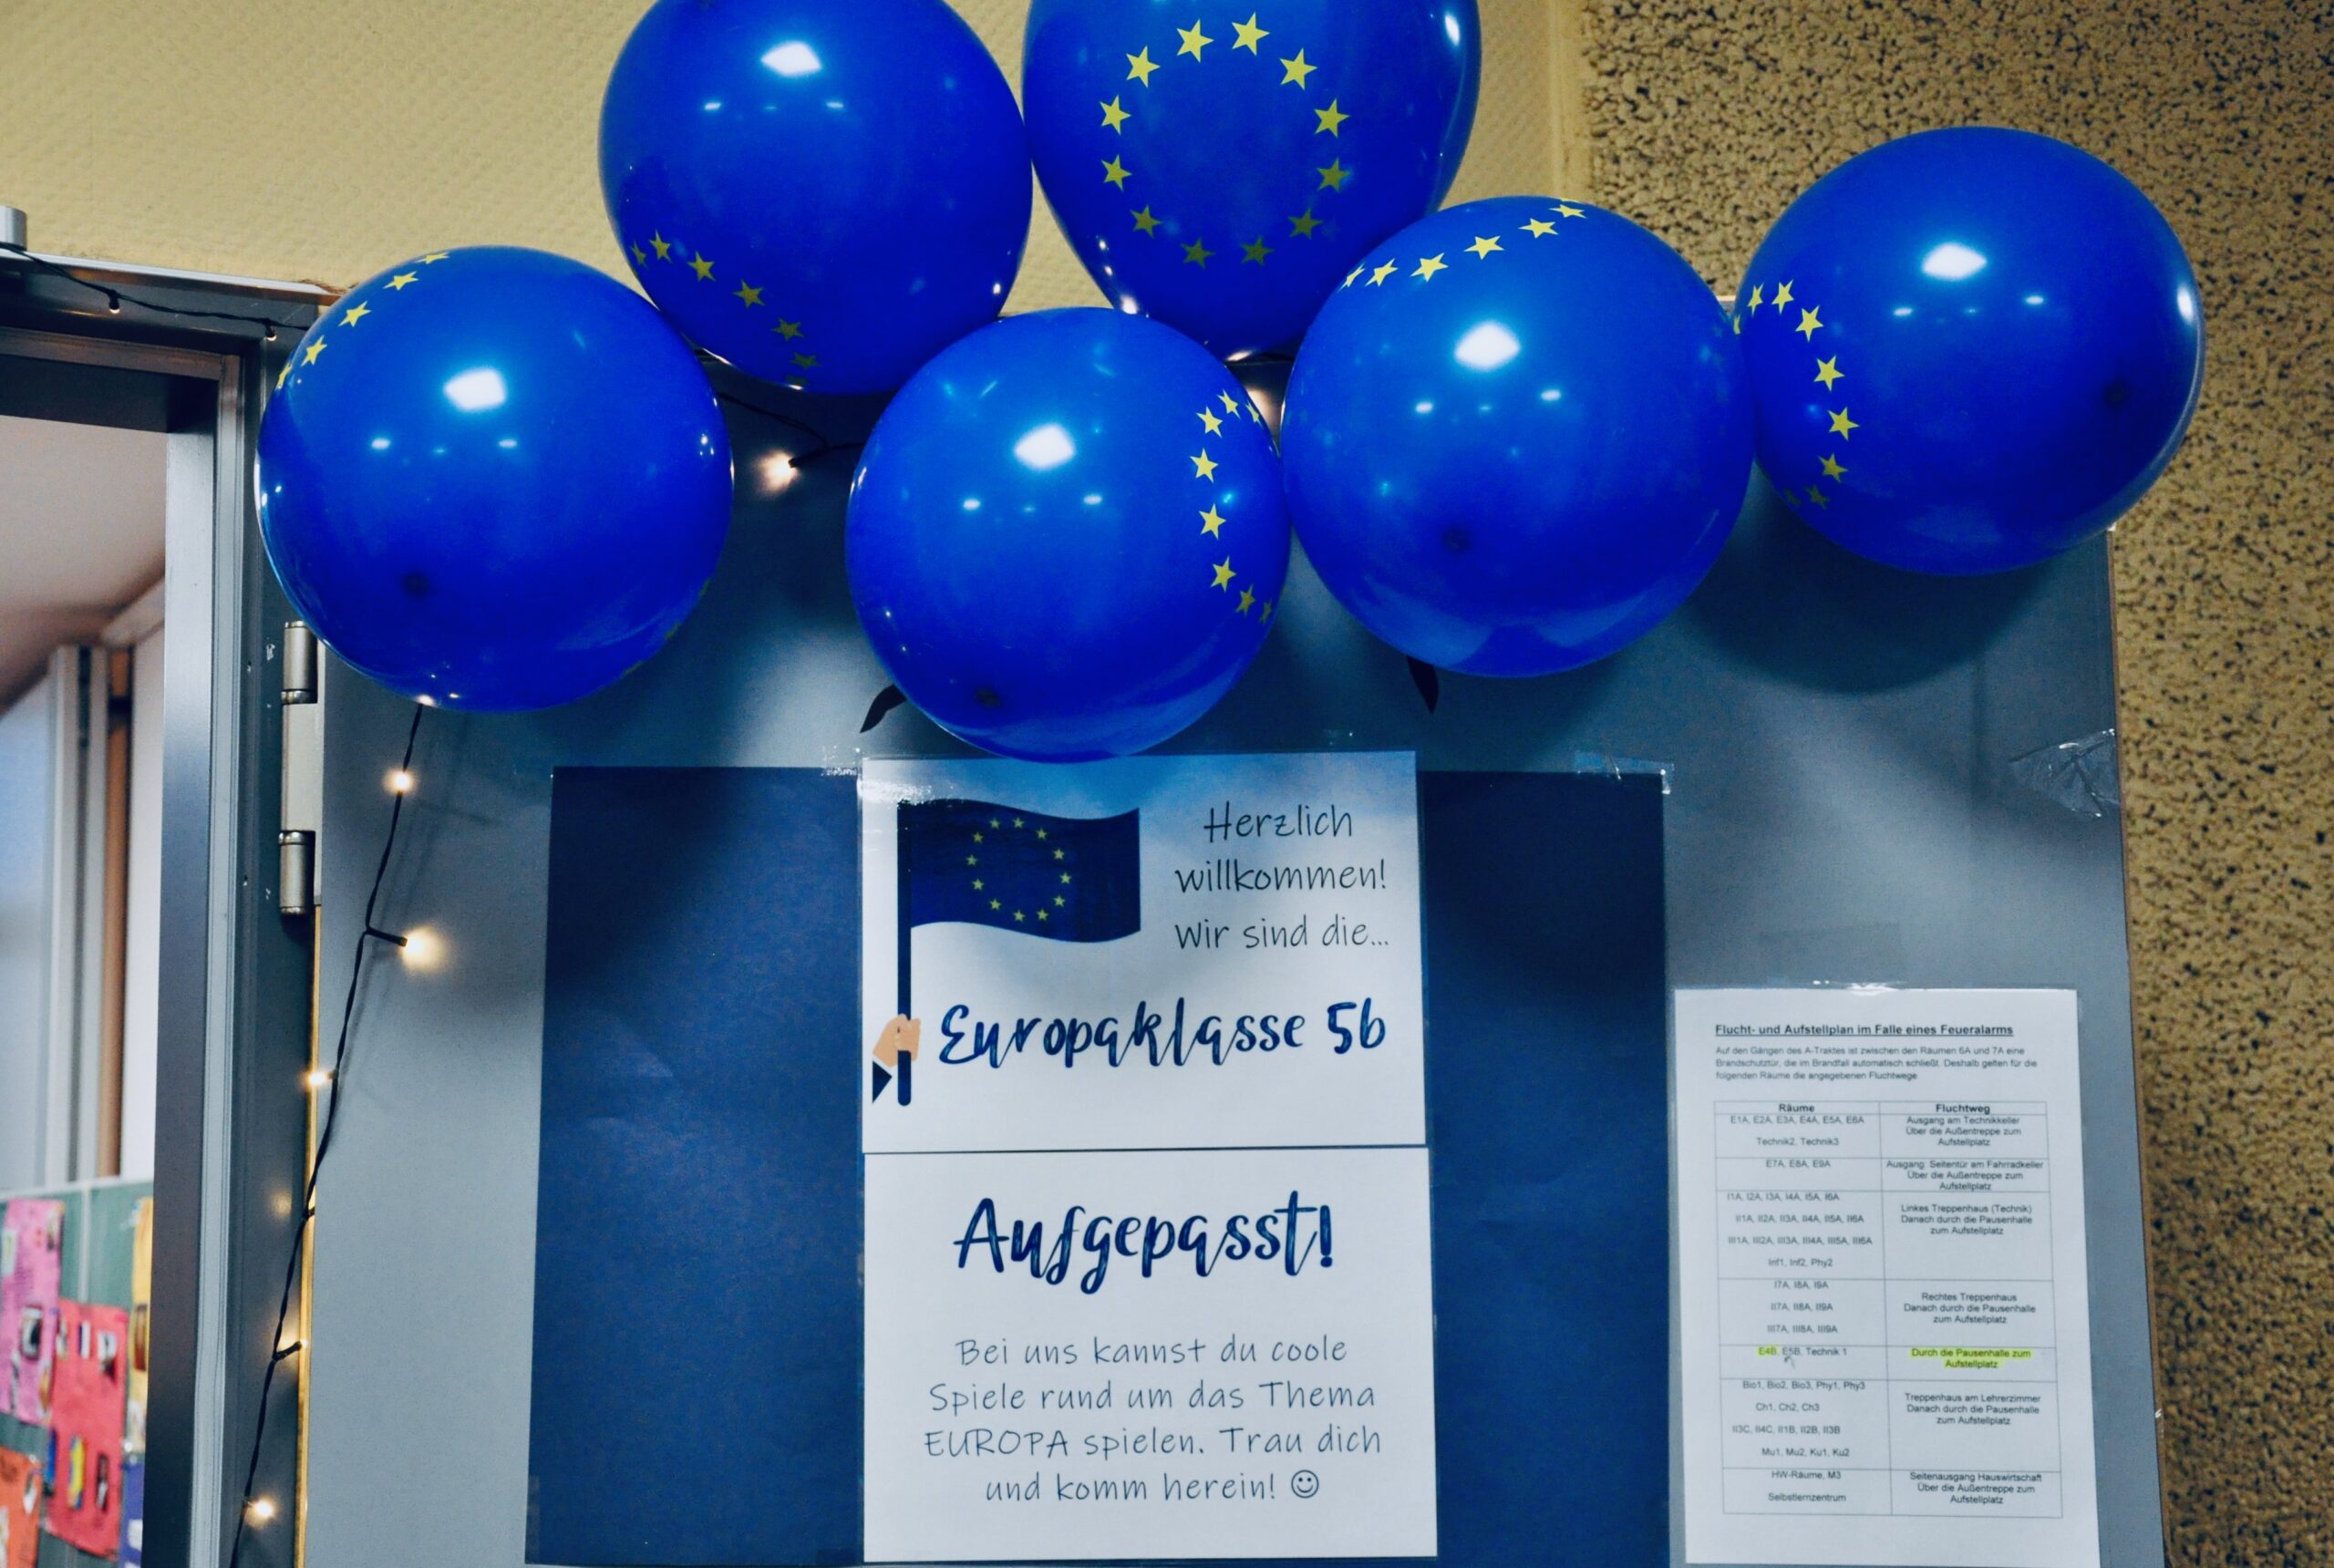 Herzlich
willkommen!
Wir sind die...
Europaklasse 5b
Aufgepasst!
Bei uns kannst du coole
Spiele rund um das Thema
EUROPA spielen. Trau dich
und komm herein! ☺
Flucht- und Aufstellplan im Falle eines Feueralarms
Auf den Gängen des A-Traktes ist zwischen den Räumen 6A und 7A eine
Brandschutztür, die im Brandfall automatisch schließt. Deshalb gelten für die
folgenden Räume die angegebenen Fluchtwege
Räume Fluchtweg
E1A, E2A, E3A, E4A, E5A, E6A
Technik2, Technik3
Ausgang am Technikkeller
Über die Außentreppe zum
Aufstellplatz
E7A, E8A, E9A
Ausgang: Seitentür am Fahrradkeller
Über die Außentreppe zum
Aufstellplatz
I1A, I2A, I3A, I4A, I5A, I6A
II1A, II2A, II3A, II4A, II5A, II6A
III1A, III2A, III3A, III4A, III5A, III6A
Inf1, Inf2, Phy2
Linkes Treppenhaus (Technik)
Danach durch die Pausenhalle
zum Aufstellplatz
I7A, I8A, I9A
II7A, II8A, II9A
III7A, III8A, III9A
Rechtes Treppenhaus
Danach durch die Pausenhalle
zum Aufstellplatz
E4B, E5B, Technik 1
Durch die Pausenhalle zum
Aufstellplatz
Bio1, Bio2, Bio3, Phy1, Phy3
Ch1, Ch2, Ch3
II3C, II4C, II1B, II2B, II3B
Mu1, Mu2, Ku1, Ku2
Treppenhaus am Lehrerzimmer
Danach durch die Pausenhalle
zum Aufstellplatz
HW-Räume, M3
Selbstlernzentrum
Seitenausgang Hauswirtschaft
Über die Außentreppe zum
Aufstellplatz